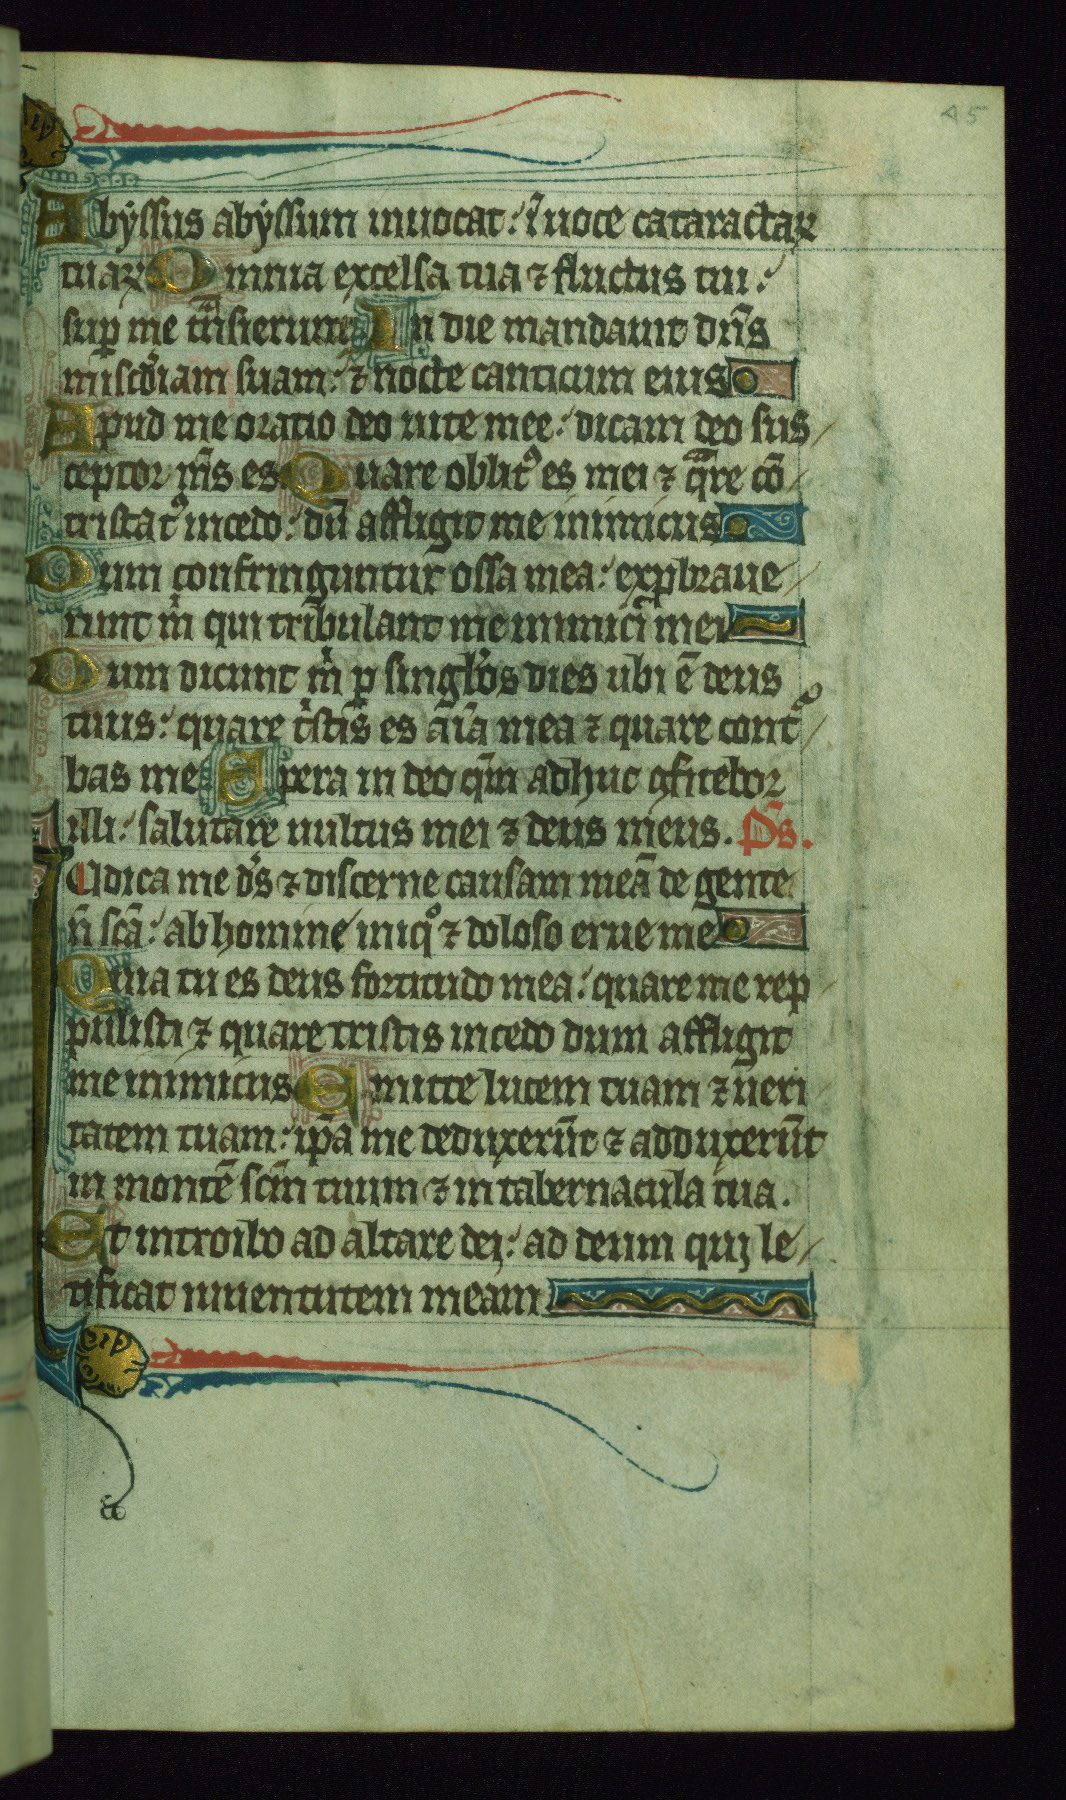 45
Abyssus abyssum inuocat: ĩ uoce cataractaꝝ
tuaꝝ Omnia excelsa tua ⁊ fluctus tui:
suꝑ me tñsierunt In die mandauit dñs
miscd̾iam suam: ⁊ nocte canticum eius
Apud me oratio deo uite mee: dicam deo sus
ceptor m̃s es Quare oblitꝰ es mei ⁊ qͣre cõ
tristatꝰ incedo: dũ affligit me inimicus
Dum confringuntur ossa mea: exꝑbraue
runt mͥ qui tribulant me inimici mei
Dum dicunt mͥ ꝑ singl̾os dies ubi ẽ deus
tuus: quare tͥstis es aĩa mea ⁊ quare contͥ
bas me Spera in deo qm̃ adhuc ꝯfitebor
illi: salutare uultus mei ⁊ deus meus. P̃s.
IUdica me d̾s ⁊ discerne causam meã de gente
ñ scã: ab homine iniqͦ ⁊ doloso erue me
Quia tu es deus fortitudo mea: quare me rep
pulisti ⁊ quare tristis incedo dum affligit
me inimicus Emitte lucem tuam ⁊ ueri
tatem tuam: ip̃a me deduxerũt ⁊ adduxerũt
in montẽ scm̃ tuum ⁊ in tabernacula tua.
Et introibo ad altare dei: ad deum qui le
tificat iuuentutem meam